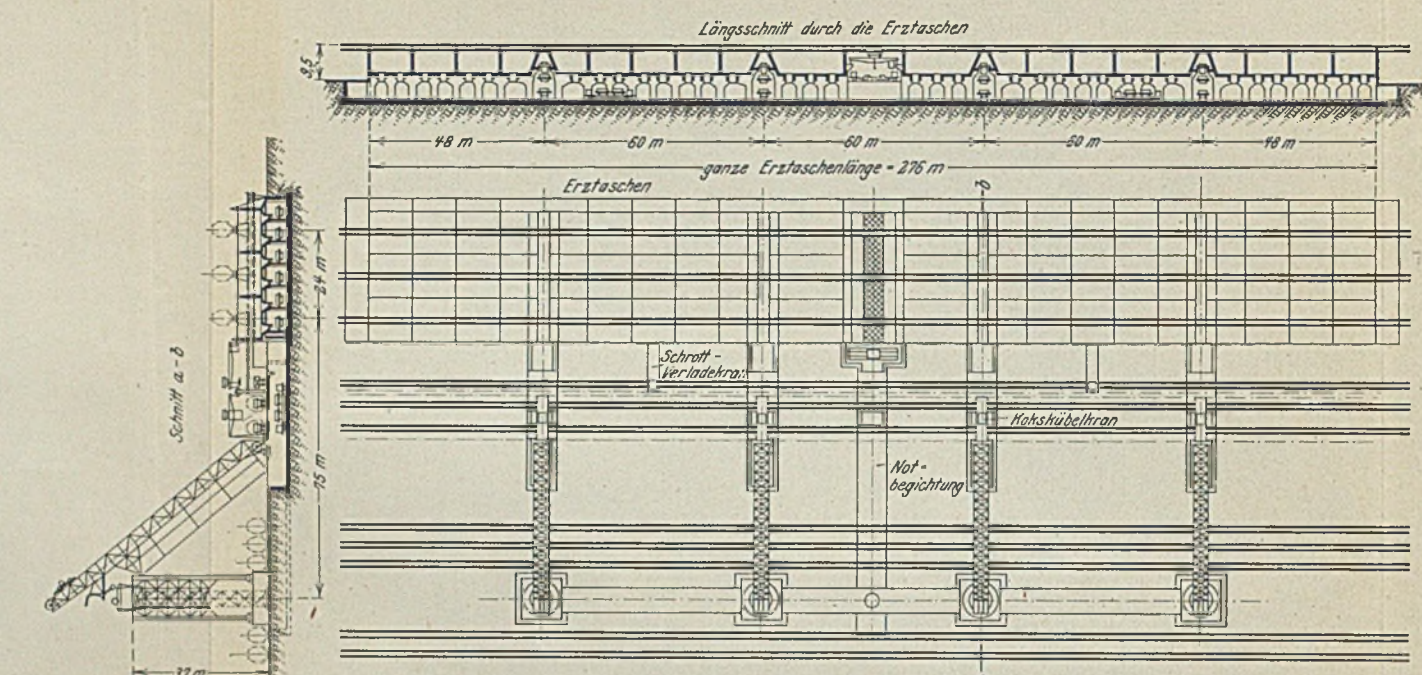 Längsschnitt durch die Erztaschen
9,5
48 m
60 m
60 m
60 m
48 m
ganze Erztaschenlänge = 276 m
Erztaschen
b
24 m
Schnitt a.-b
Schrott-
Verladekran
75 m
Kokskübelkran
Not-
begichtung